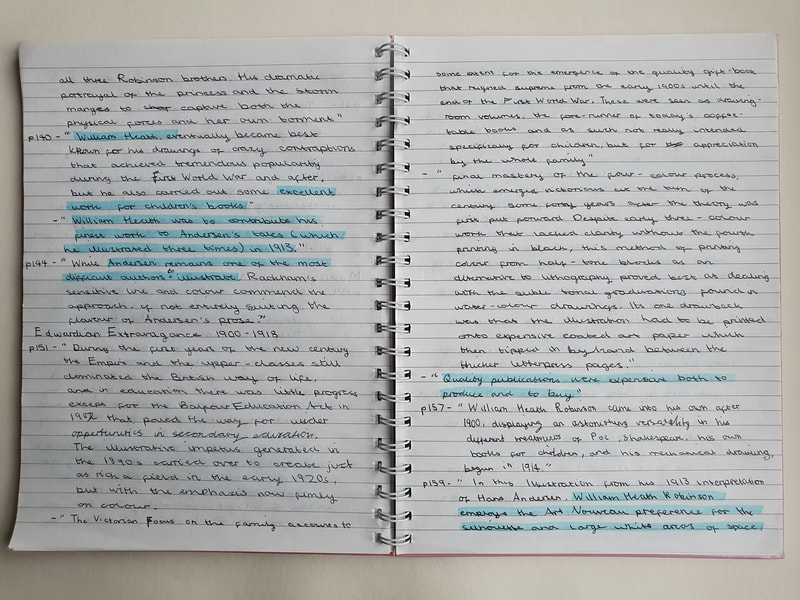 all three Robinson brothers. His dramatic
portrayal of the princess and the storm
manges to capture both the
physical forces and her own torment"
p140 - "William Heath eventually became best
known for his drawings of crazy contraptions
that achieved tremendous popularity
during the First World War and after,
but he also carried out some excellent
work for children's books."
- "William Heath was to contribute his
finest work to Andersen's tales (which
he illustrated three times) in 1913."
p144 - "While Andersen remains one of the most
difficult authors to illustrate, Rackham's
sensitive line and colour commend the
approach, if not entirely suiting the
flavour of Andersen's prose."
Edwardian Extravagance 1900-1918
p151 - "During the first years of the new century
the Empire and the upper-classes still
dominated the British way of life,
and in education there was little progress
except for the Balfour Education Acts in
1902 that paved the way for wider
opportunities in secondary education.
The illustrative impetus generated in
the 1890s carried over to create just
as rich a field in the early 1920s,
but with the emphasis now firmly
on colour.
- "The Victorian focus on the family accounts to
some extent for the emergence of the quality gift-book
that reigned supreme from the early 1900s until the
end of the First World War. These were seen as drawing-
room volumes, the fore-runner of today's coffee-
table books and as such not really intended
specifically for children, but for appreciation
by the whole family"
- "final mastery of the four-colour process,
which emerged victorious at the turn of the
century some forty years after the theory was
first put forward. Despite early three-colour
work that lacked clarity without the fourth
printing in black, this method of printing
colour from half-tone blocks as an
alternative to lithography proved best at dealing
with the subtle tonal graduations found in
water-colour drawings. Its one drawback
was that the illustration had to be printed
onto expensive coated art paper which
then tipped in by hand between the
thicker letterpress pages."
- "Quality publications were expensive both to
produce and to buy"
p157 - "William Heath Robinson came into his own after
1900, displaying an astonishing versatility in his
different treatments of Poe, Shakespeare, his own
books for children, and his mechanical drawing,
begun in 1914."
p159 - "In this illustration from his 1913 interpretation
of Hans Andersen, William Heath Robinson
employs the Art Nouveau preference for the
silhouette and large white areas of space,